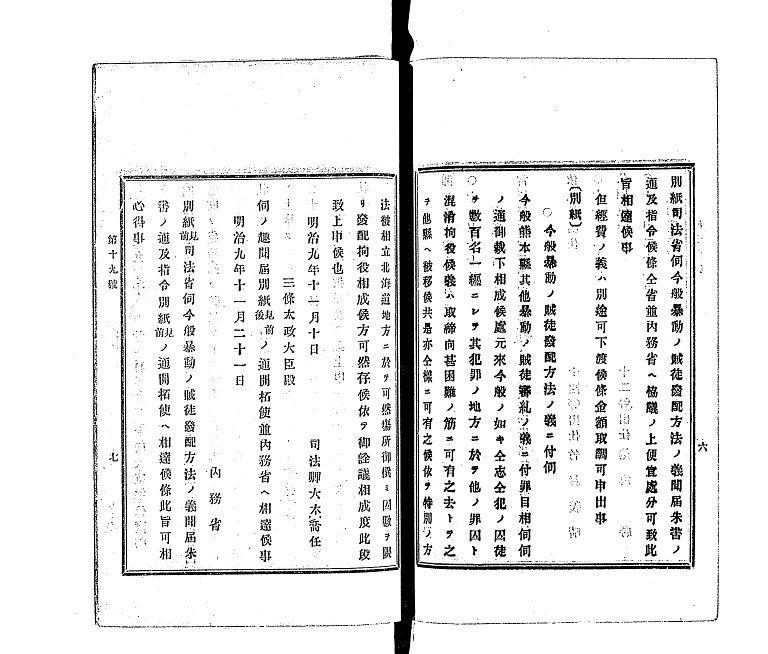 別紙司法省伺今般暴動ノ賊徒發配方法ノ義聞届朱書ノ
通及指令候條仝省並內務省ヘ協議ノ上便宜處分可致此
旨相達候事
但經費ノ義ハ別途可下渡候條金額取調可申出事
〔別紙〕
○今般暴動ノ賊徒發配方法ノ義ニ付伺
今般熊本縣其他暴動ノ賊徒審糺ノ義ニ付罪目相伺伺
ノ通御裁下相成候處元來今般ノ如キ仝志仝犯ノ囚徒
ヲ數百名一纒ニシテ其犯罪ノ地方ニ於テ他ノ罪囚ト
混淆拘役候義ハ取締向甚困難ノ筋ニ可有之去トテ之
ヲ他縣ヘ被移候共是亦仝樣ニ可有之候依テ特別ノ方
六
法被相立北海道地方ニ於テ可然場所御撰ミ囚數ヲ限
リ發配拘役相成候方可然存候依テ御詮議相成度此段
致上申候也
明治九年十一月十日
司法卿大木喬任
三條太政大臣殿
伺ノ趣聞届別紙見前後ノ通開拓使並內務省ヘ相達候事
明治九年十一月二十一日
內務省
別紙見前司法省伺今般暴動ノ賊徒發配方法ノ義聞届朱
書ノ通及指令別紙見前ノ通開拓使ヘ相達候條此旨可相
心得事
第十九號
七